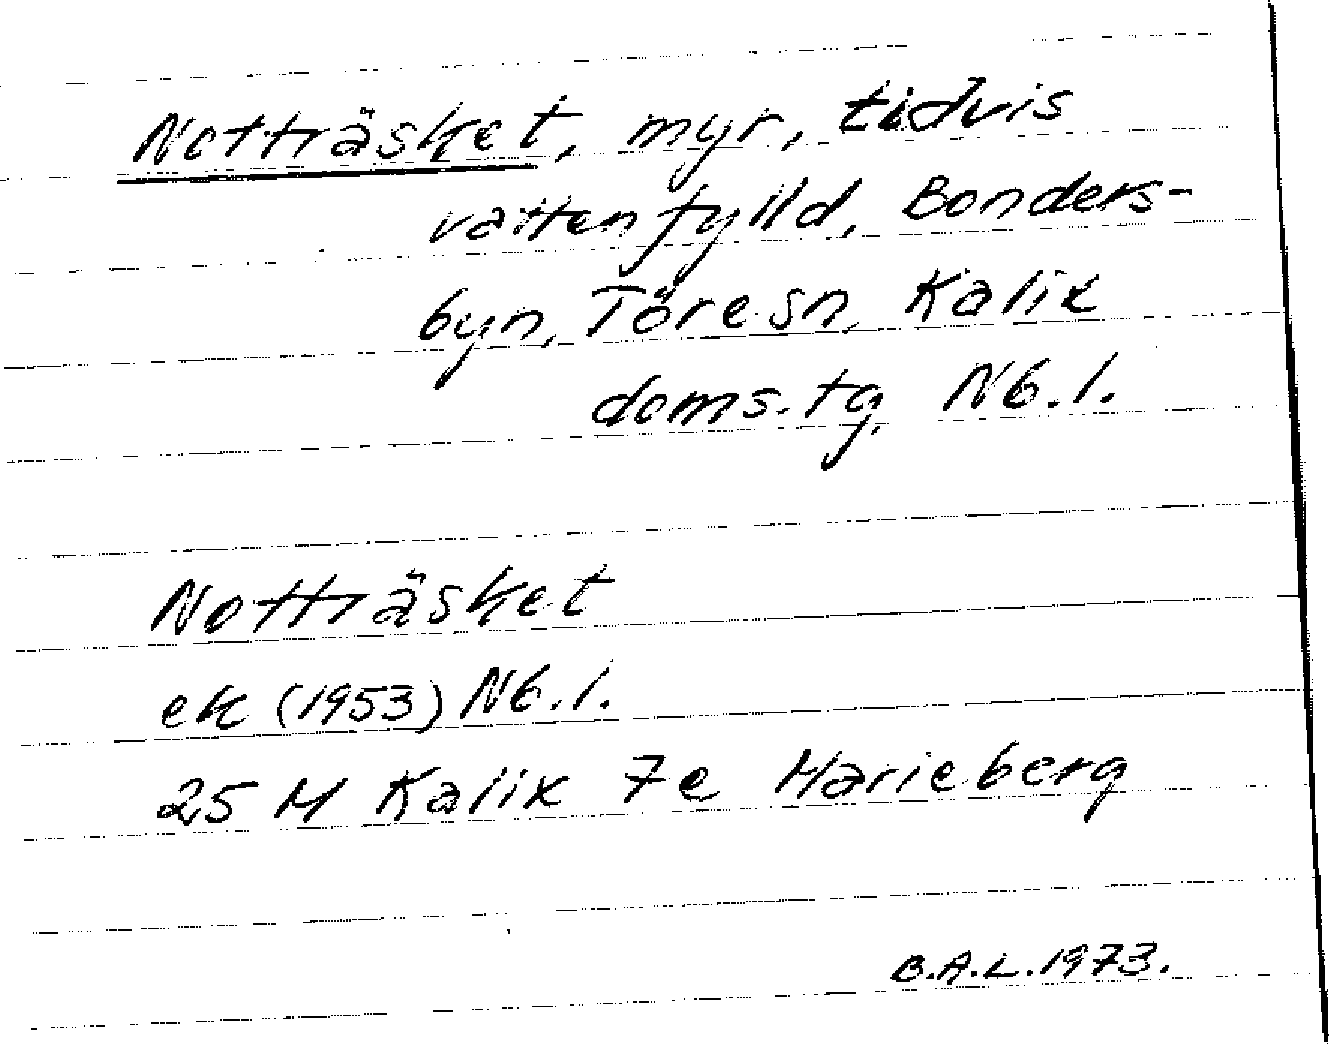 Notträsket, myr, tidvis
vattenfylld, Bonders-
byn, Töre sn, Kalix
doms. tg, Nb. l.
Notträsket
ek (1953) Nb. l.
25 M Kalix 7e Marieberg
B.A.L. 1973.